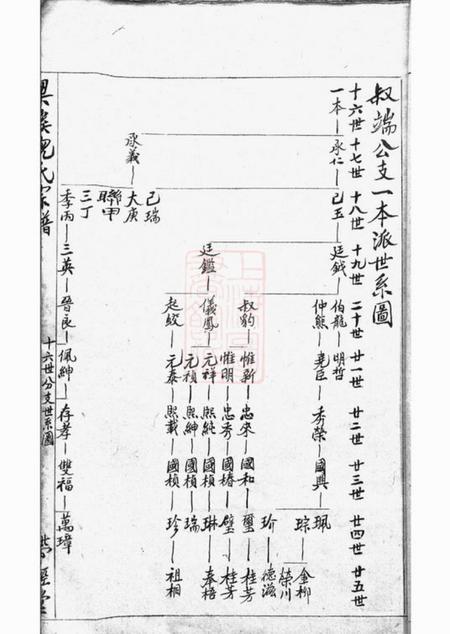 叔端公支一本派世系圖
十六世 十七世 十八世 十九世 二十世 廿一世 廿二世 廿三世 廿四世 廿五世
一本 承仁 己玉 廷鉞 伯龍 明哲
仲熊 堯臣 秀榮 國興 珮 金柳
琮 榮川
玠 德滋
叔豹 惟新 忠來 國和 璽 桂芳
惟明 忠秀 國椿 璧 桂芳
廷鑑 儀鳳 元祥 熙純 國楨 琳 奉梧
元禎 熙紳 國楨 瑞
起蛟 元泰 熙載 國楨 珍 祖桐
承義 己瑞
大庚
聯甲
三丁
季丙 三英 晉良 佩紳 存孝 雙福 萬璋
氏宗譜
十六世分支世系圖